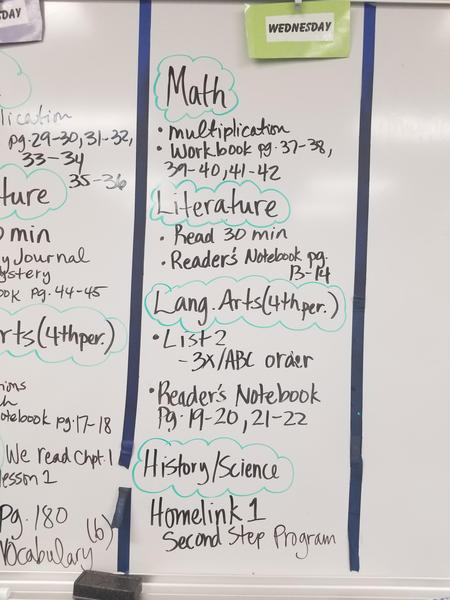 DAY
lication
pg. 29-30, 31-32,
33-34
35-36
ture
0 min
y Journal
ystery
ook pg. 44-45
rts (4th per.)
ions
h
otebook pg. 17-18
We read Chpt. 1
lesson 1
pg. 180
(6)
Vocabulary
WEDNESDAY
Math
• multiplication
• Workbook pg. 37-38,
39-40, 41-42
Literature
• Read 30 min
• Reader's Notebook pg.
13-14
Lang. Arts (4th per.)
• List 2
- 3x/ABC order
• Reader's Notebook
Pg. 19-20, 21-22
History/Science
Homelink 1
Second Step Program